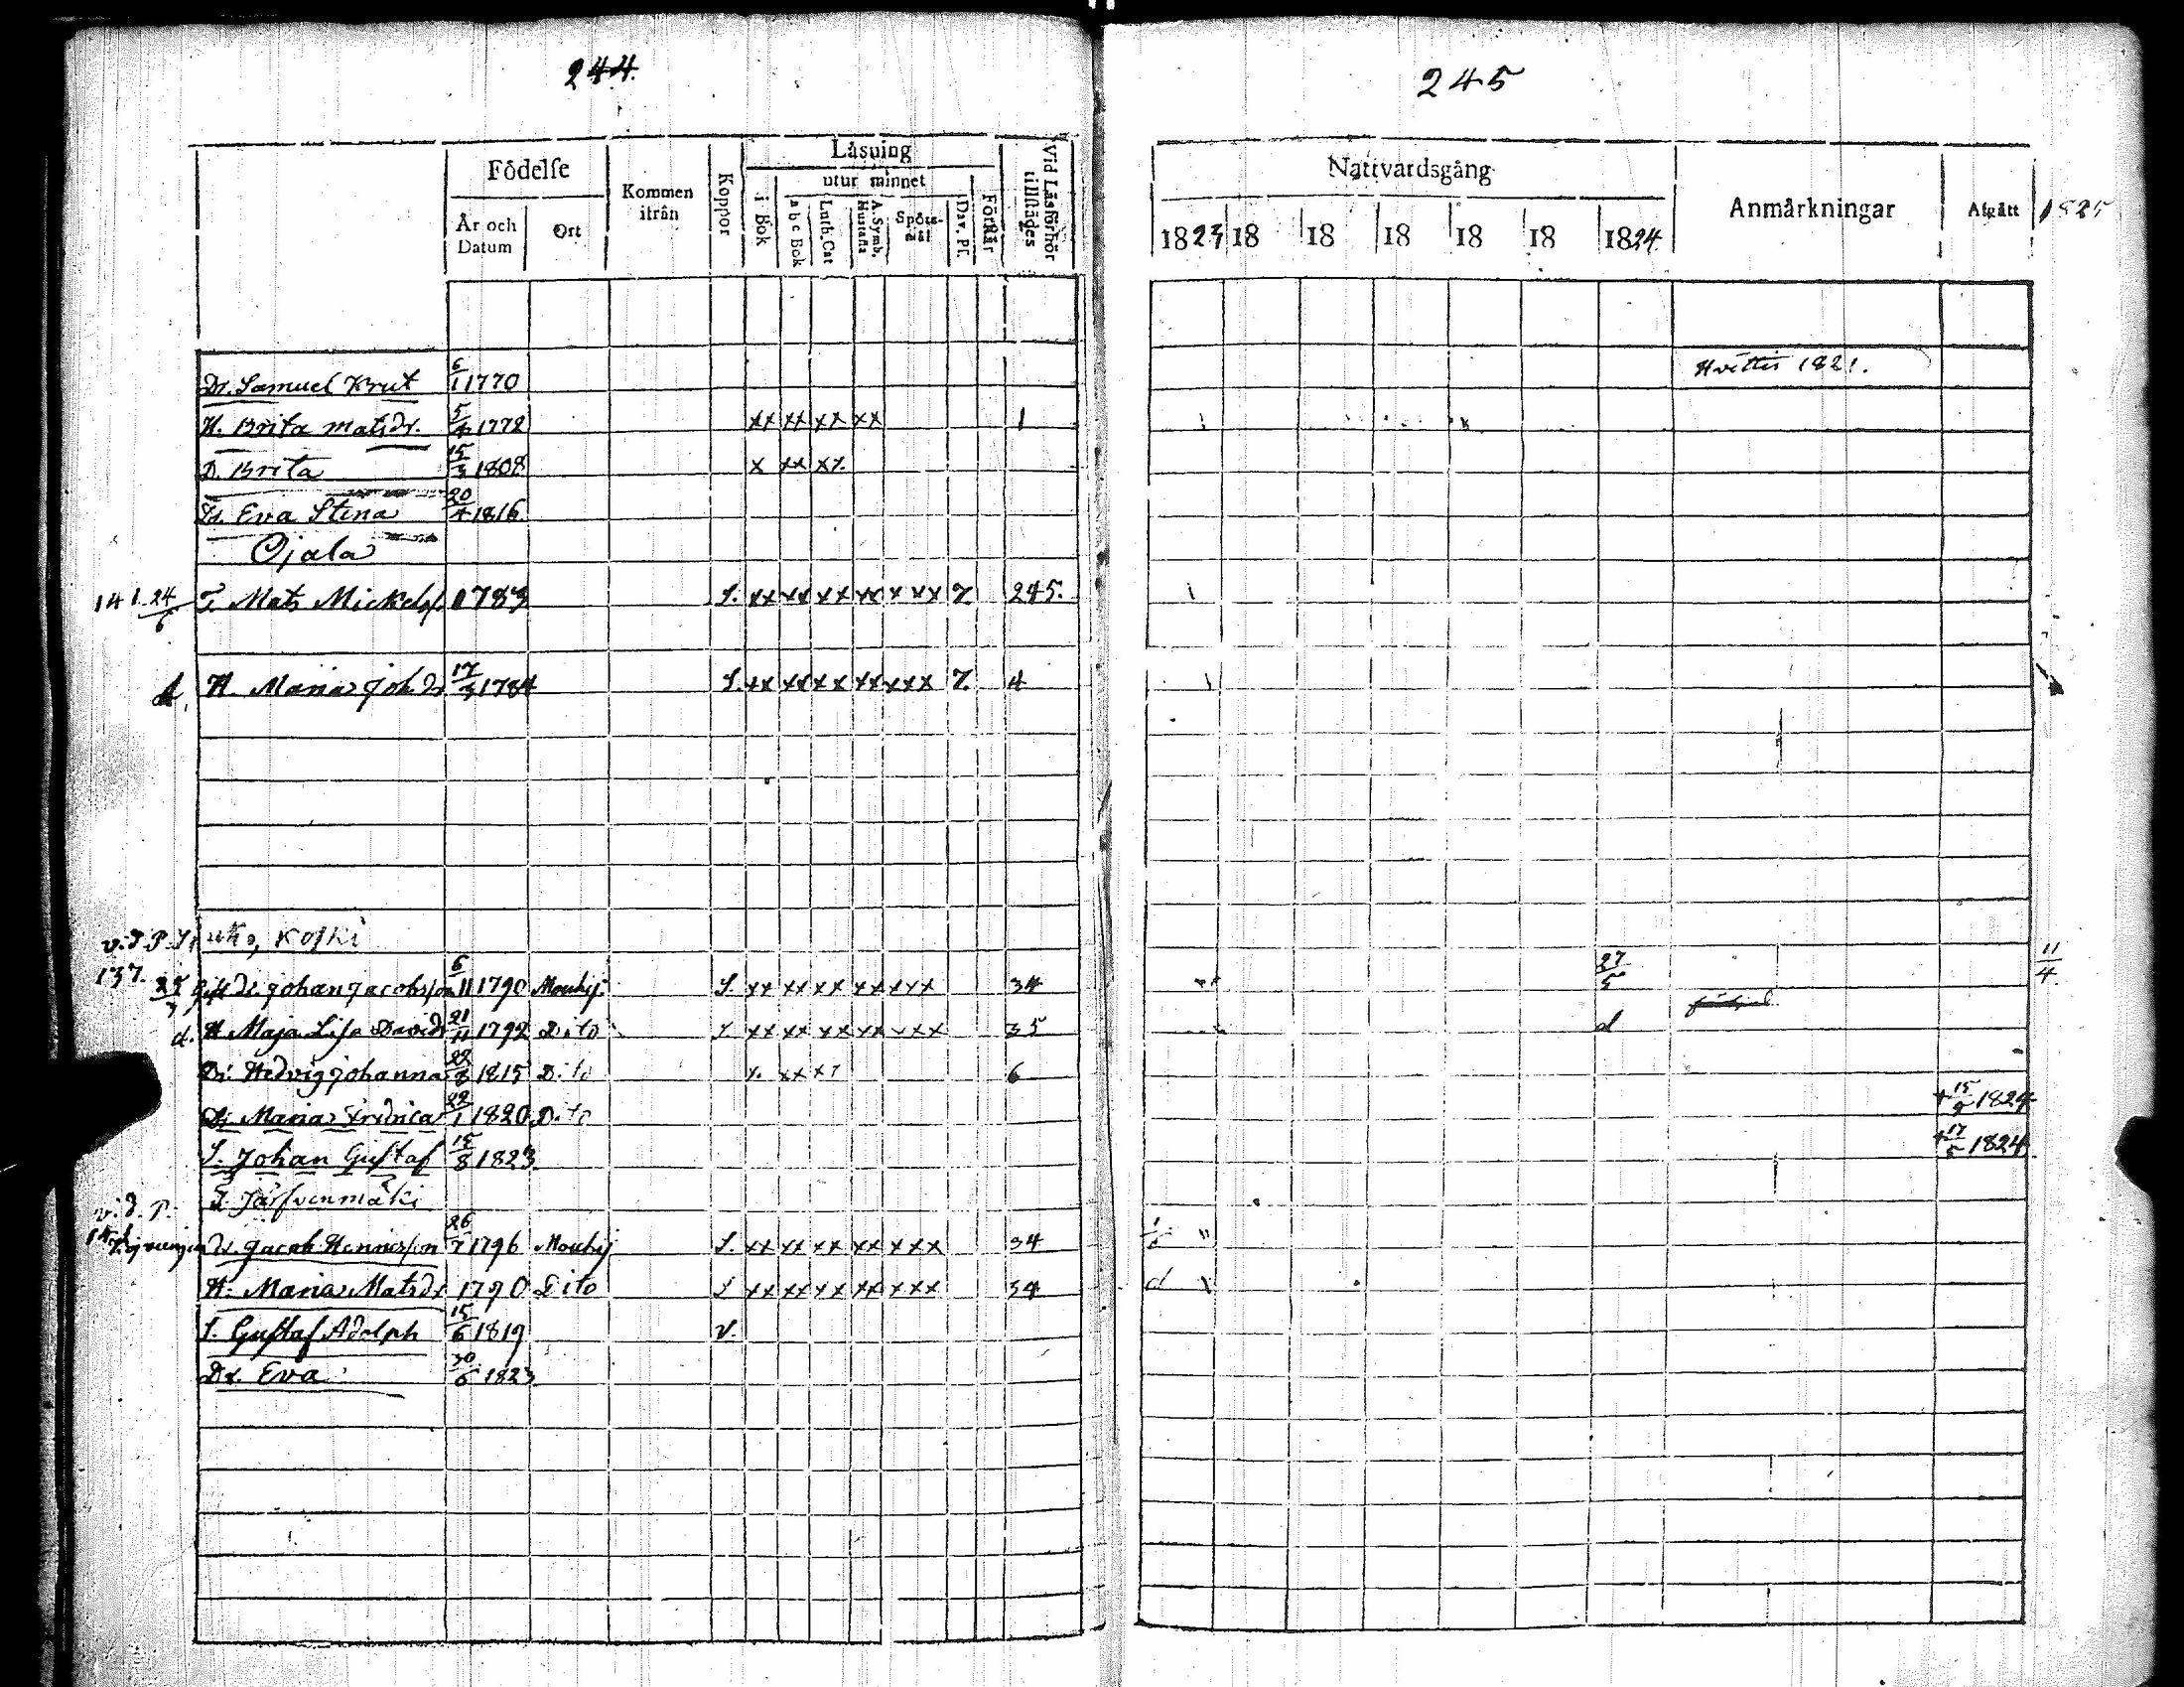 244.
Födelse
År och Datum
Ort
Kommen ifrån
Koppor
Läsning
utur minnet
i Bok
a b c Bok
Luth. Cat
A. Symb. Hustafla
Spörs-mål
Dav. Ps.
Förklar
Vid Läsförhör tillstädes
Dr. Samuel Krut 6/1 1770
H. Brita Matsdr. 5/4 1778 xx xx xx xx 1
D. Brita 15/3 1808 x xx xx
Dr. Eva Stina 20/4 1816
Ojala
141. 24/6 T. Mats Mickelss. 1783 S. xx xx xx xx xxx 7. 245.
d. H. Maria Joh.dr 17/3 1784 S. xx xx xx xx xxx 7. 4
v. T. P. Koski
137. 25/7 Dr. Johan Jacobsson 6/11 1790 Mouhij. S. xx xx xx xx xxx 34
d. H Maja Lisa Davidsdr 21/11 1792 Dito S xx xx xx xx xxx 35
Dr. Hedvig Johanna 28/8 1815 Dito x xx xx 6
Dr Maria Fredrica 22/1 1820 Dito
S. Johan Gustaf 15/8 1823
T. Järfvenmäki
v. T. P.
Dr. Jacob Henricsson 26/7 1796 Mouhij S. xx xx xx xx xxx 34
H. Maria Matsdr 1790 Dito S xx xx xx xx xxx 34
S. Gustaf Adolph 15/6 1819 v.
Dr. Eva 30/6 1823
245
Nattvardsgång
Anmärkningar
Afgått
1825
1823 18 18 18 18 18 1824
Hvittis 1821.
27/5 11/4
d
+ 15/9 1824
+ 17/5 1824
d